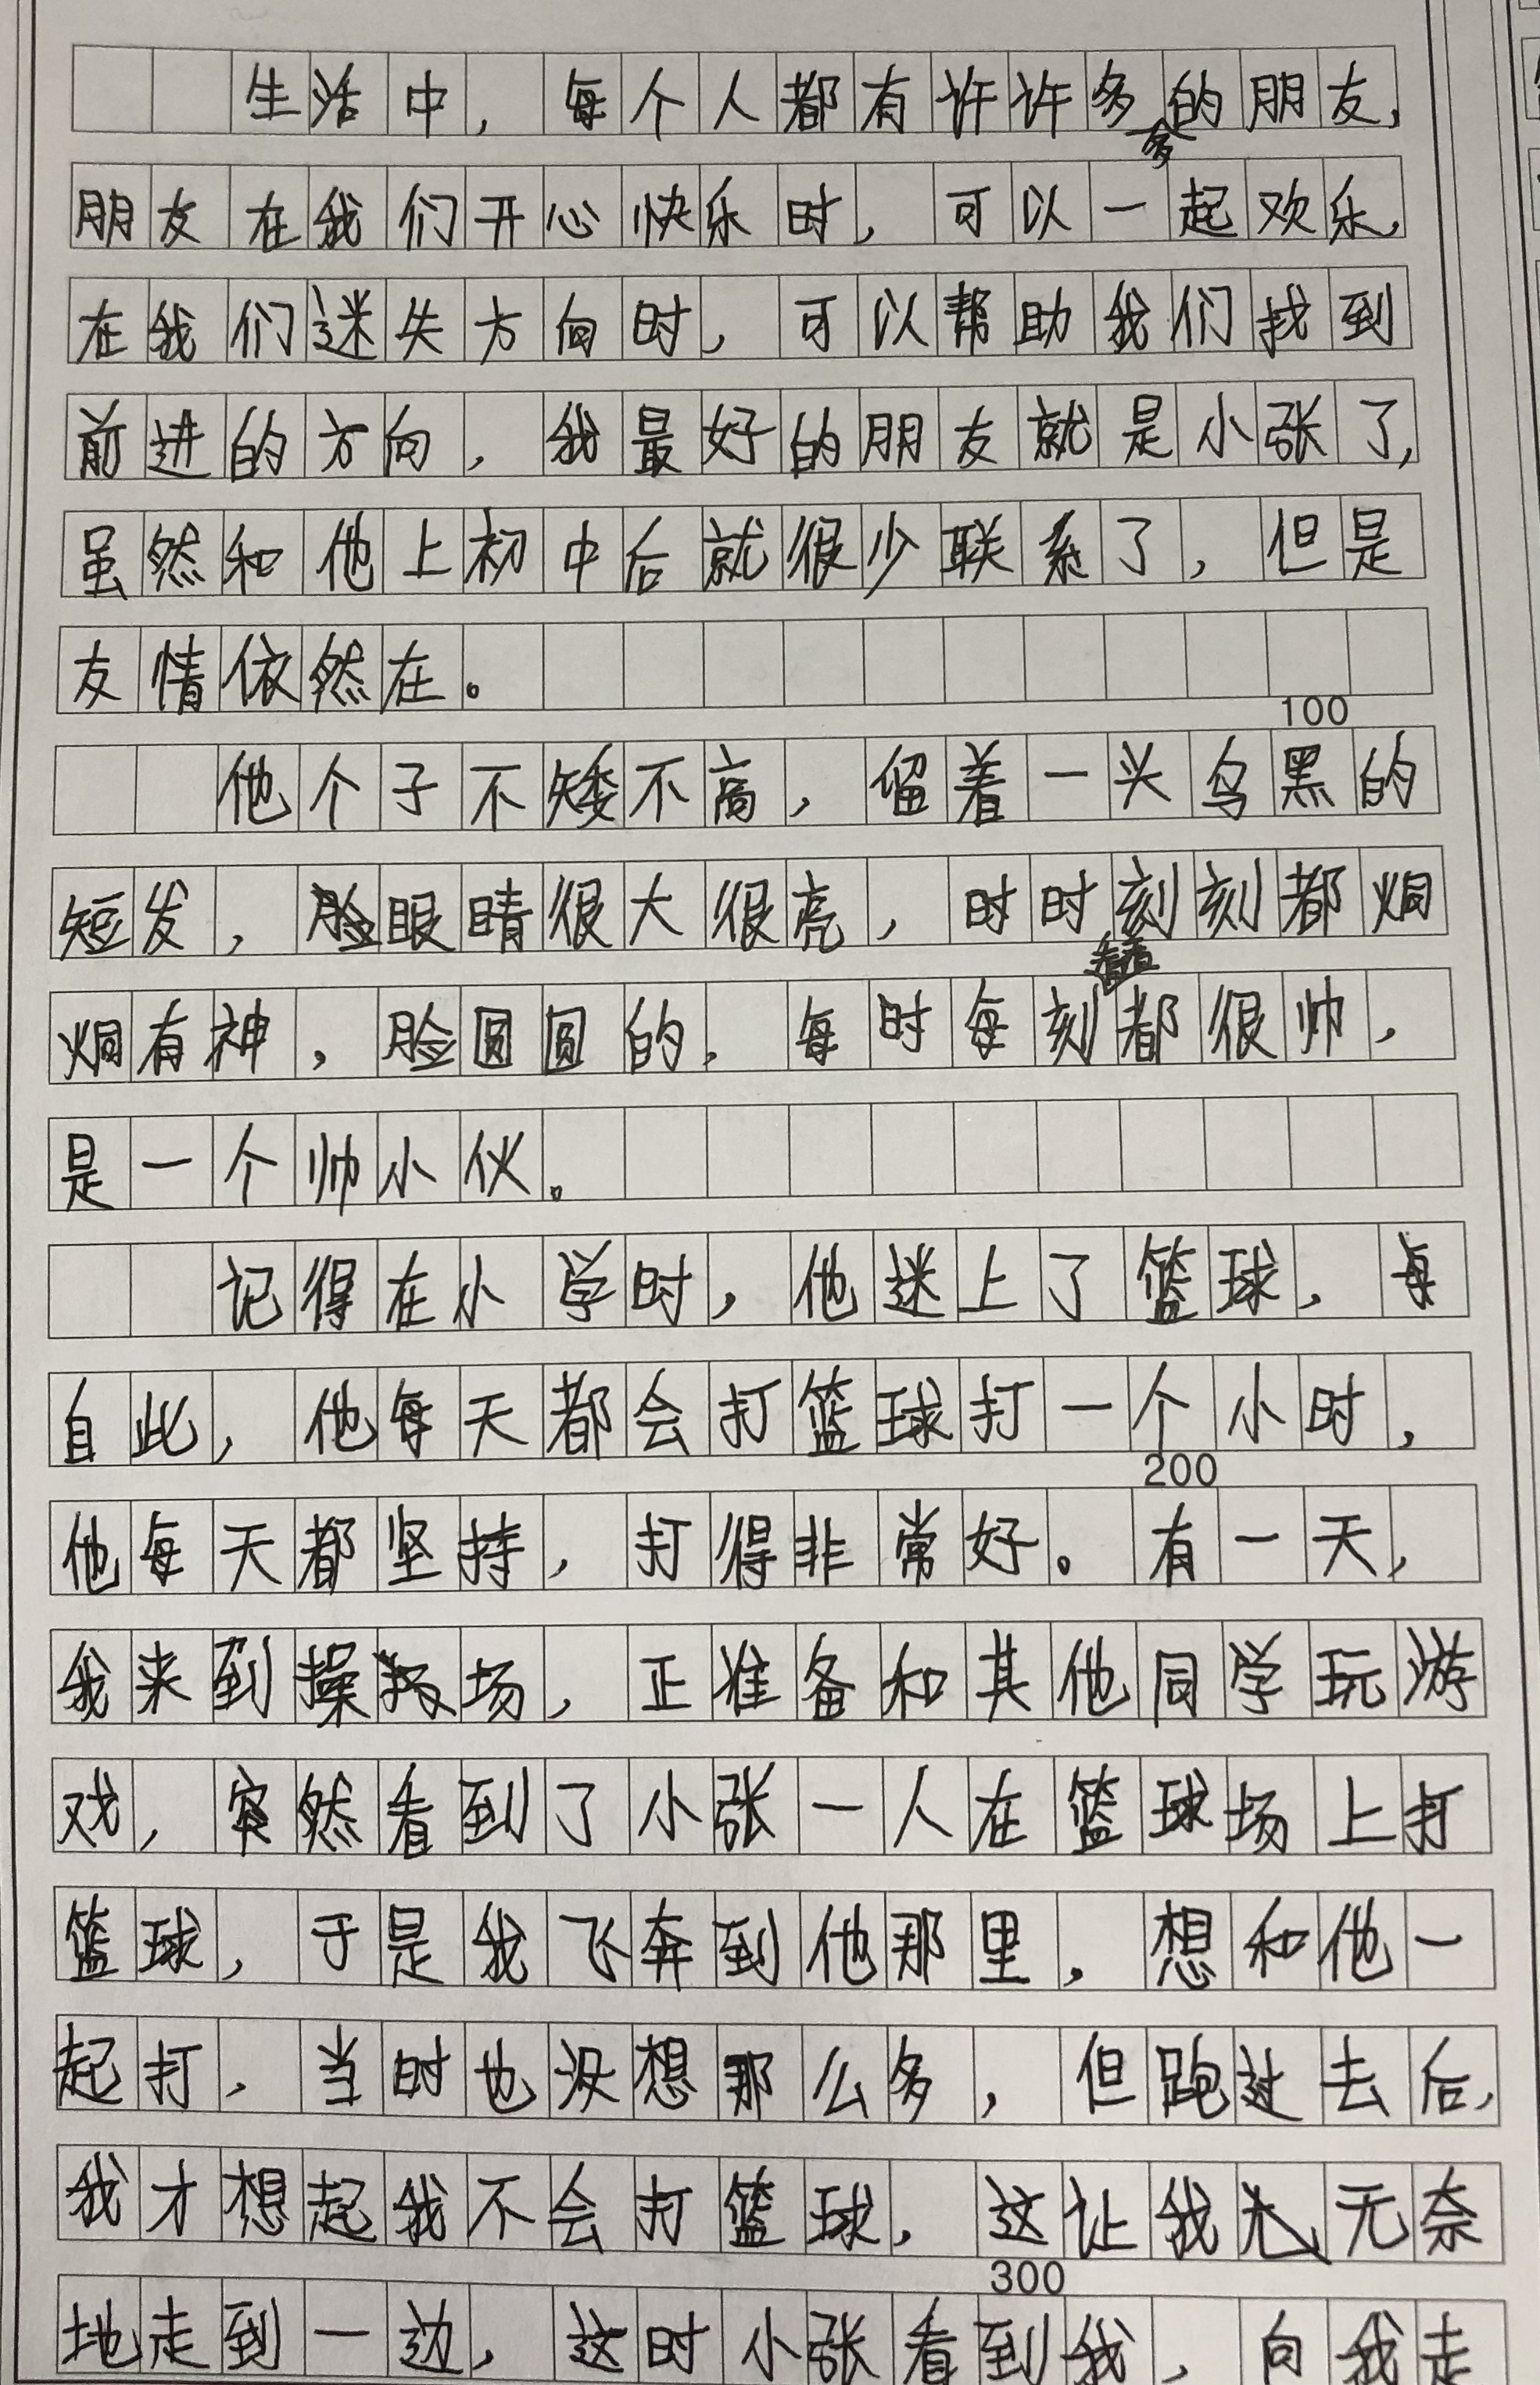 生活中，每个人都有许许多的朋友，
多
朋友在我们开心快乐时，可以一起欢乐，
在我们迷失方向时，可以帮助我们找到
前进的方向，我最好的朋友就是小张了，
虽然和他上初中后就很少联系了，但是
友情依然在。
100
他个子不矮不高，留着一头乌黑的
短发，眼睛很大很亮，时时刻刻都炯
炯有神，脸圆圆的，每时每刻都很帅，
是一个帅小伙。
记得在小学时，他迷上了篮球，每
自此，他每天都会打篮球打一个小时，
200
他每天都坚持，打得非常好。有一天，
我来到操场，正准备和其他同学玩游
戏，突然看到了小张一人在篮球场上打
篮球，于是我飞奔到他那里，想和他一
起打，当时也没想那么多，但跑过去后，
我才想起我不会打篮球，这让我无奈
300
地走到一边，这时小张看到我，向我走